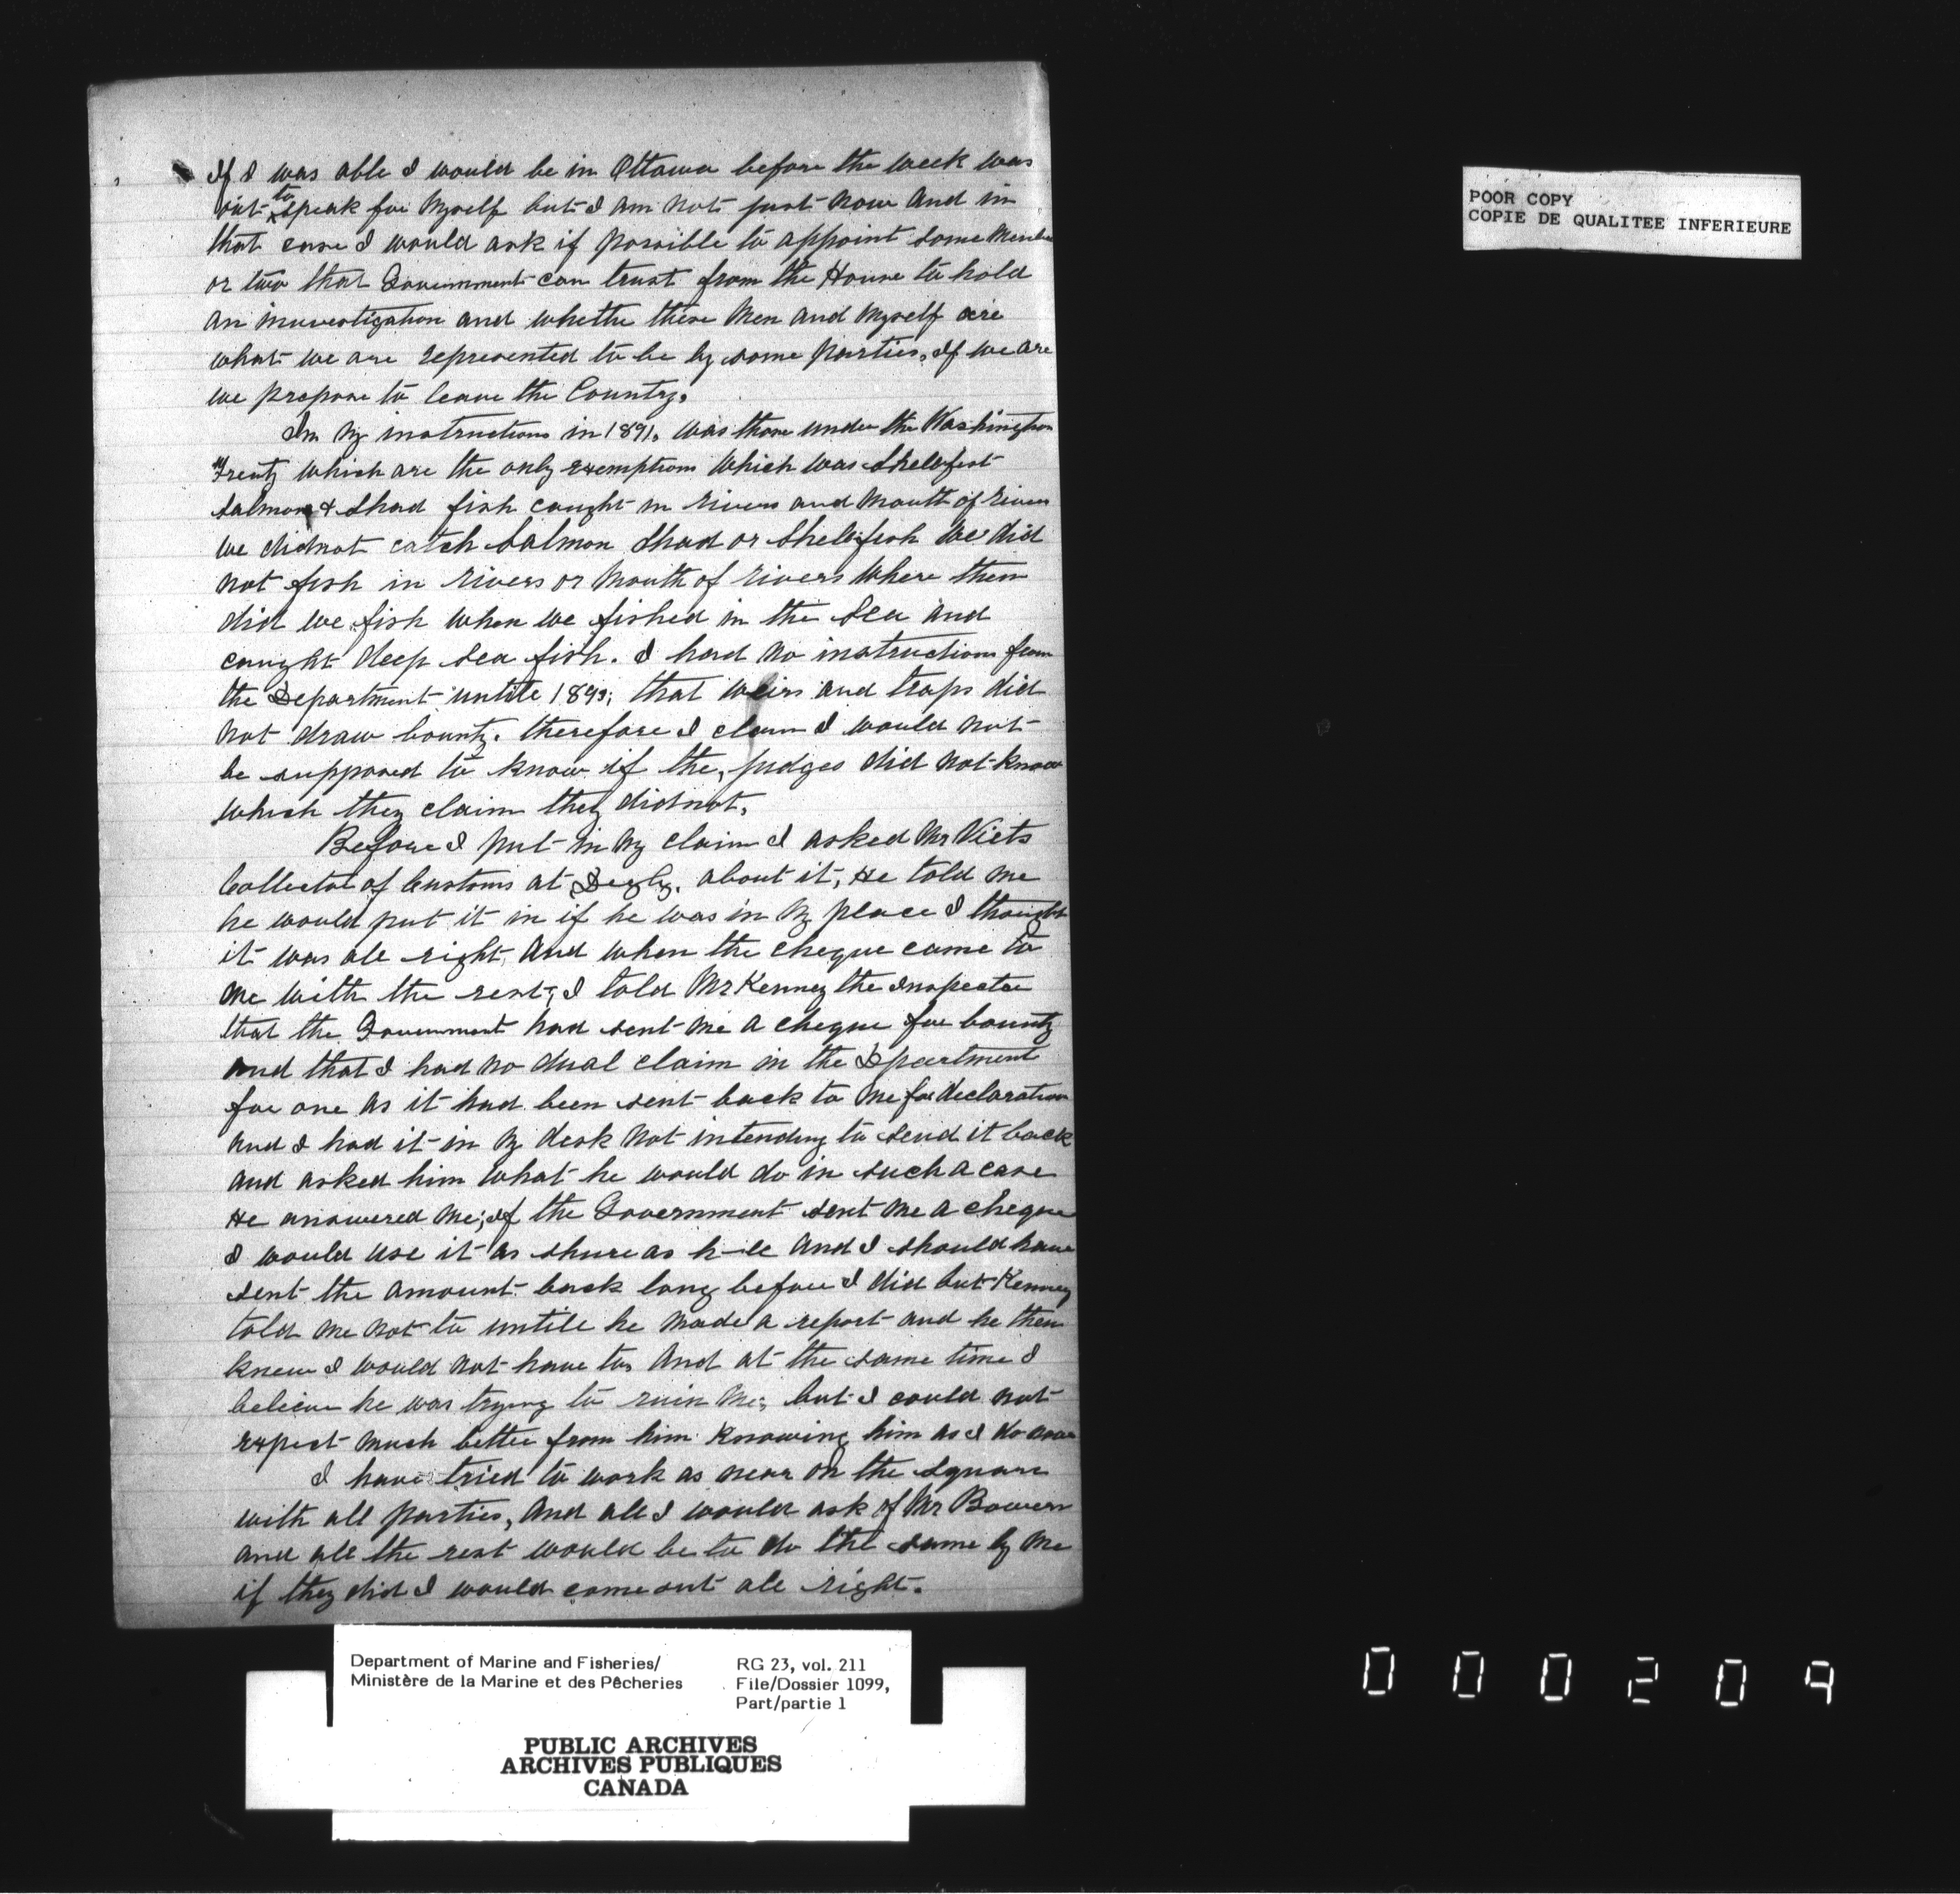 If I was able I would be in Ottawa before the week was
out to speak for Myself but I am not just now and in
that case I would ask if possible to appoint some Member
or two that Government can trust from the House to hold
an investigation and whether these Men and Myself are
what we are represented to be by some parties, If we are
we propose to leave the Country.
In My instructions in 1891, was those under the Washington
Treaty which are the only exemptions which was Shellfish
Salmon & Shad fish caught in rivers and Mouth of rivers
we did not catch Salmon Shad or Shellfish We did
not fish in rivers or Mouth of rivers Where then
did we fish when we fished in the Sea and
caught deep sea fish. I had no instructions from
the Department untile that weirs and traps did
not draw bounty. therefore I claim I would not
be supposed to know if the judges did not know
which they claim they did not,
Before I put in My claim I asked Mr Viets
Collector of Customs at Digby. about it, He told me
he would put it in if he was in My place I thought
it was all right, And when the cheque came to
Me with the rest, I told Mr Kenney the Inspector
that the Government had sent Me a cheque for bounty
and that I had no dual claim in the Department
for one as it had been sent back to Me for declaration
And I had it in My desk Not intending to send it back
and asked him What he would do in such a case
He answered Me; If the Government sent me a cheque
I would use it as shure as h-ll And I should have
sent the amount back long before I did but Kenney
told me not to untile he made a report and he then
knew I would not have to, And at the same time I
believe he was trying to ruin Me; but I could not
expect much better from him Knowing him as I do now
I have tried to work as near on the square
with all parties, And all I would ask of Mr Bowers
and all the rest would be to do the same by me
if they did I would come out all right.
POOR COPY
COPIE DE QUALITEE INFERIEURE
Department of Marine and Fisheries/
Ministère de la Marine et des Pêcheries
RG 23, vol. 211
File/Dossier 1099,
Part/partie 1
PUBLIC ARCHIVES
ARCHIVES PUBLIQUES
CANADA
000209